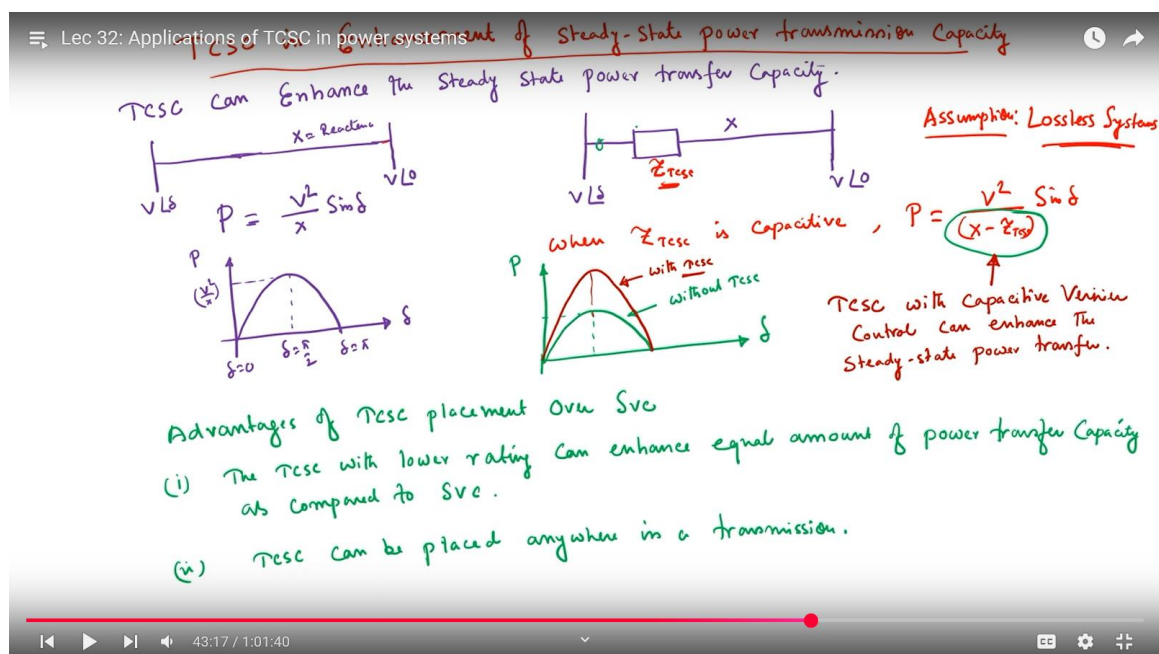 Lec 32: Applications of TCSC in power systems
TCSC in Enhancement of Steady-State power transmission Capacity
TCSC can Enhance the Steady State power transfer Capacity.
Assumption: Lossless Systems
X = Reactance
V∠δ
V∠0
P = V²/X Sinδ
X
Z_TCSC
V∠δ
V∠0
when Z_TCSC is capacitive, P = V²/(X - Z_TCSC) Sinδ
P
(V²/X)
δ
δ=0
δ=π/2
δ=π
P
with TCSC
without TCSC
δ
TCSC with Capacitive Vernier
Control can enhance The
Steady-state power transfer.
Advantages of TCSC placement Over SVC
(i) The TCSC with lower rating can enhance equal amount of power transfer Capacity
as compared to SVC.
(ii) TCSC can be placed anywhere in a transmission.
43:17 / 1:01:40
CC